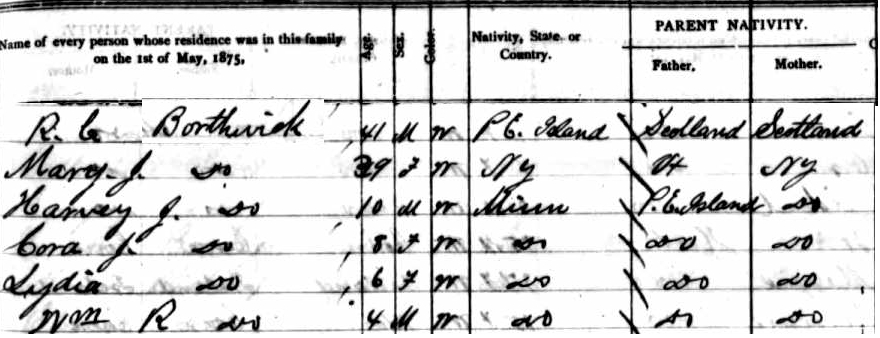 PARENT NATIVITY.
Name of every person whose residence was in this family on the 1st of May, 1875, Age. Sex. Color. Nativity, State or Country. Father. Mother.
R. C Borthwick 41 M W P E. Island Scotland Scotland
Mary J. do 39 F W NY Vt NY
Harvey J. do 10 M W Minn P. E. Island do
Cora J. do 8 F W do do do
Lydia do 6 F W do do do
Wm R do 4 M W do do do